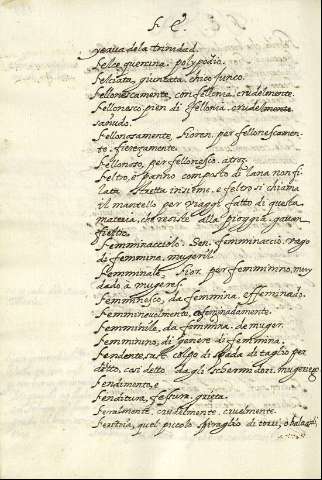 F. E.
yerua de la trinidad.
Felce quercina. polypodio.
Felciata, giuncata. chico junco.
Fellonescamente, con fellonia. crudelmente.
Fellonesco, pien di fellonia. crudelmente
sañudo.
Fellonosamente, Fioren. per fellonescamen
to. fieramente.
Fellonoso, per fellonesco. atroz.
Feltro è panno composto di lana non fi
lata stretta insieme, e feltro si chiama
il mantello per viaggi fatto di questa
materia, che resiste alla pioggia. gauan
fieltro.
Femminacciolo. Sen. femminaccio. vago
di femmina. mugeril.
Femminale, Fior. per femminino, muy
dado à mugeres.
Femminesco, da femmina. effeminado.
Femminevolmente, efeminadamente.
Femminile, da femmina. de muger.
Femminino, di genere di femmina.
Fendente, sust. colpo di spada di taglio per
detto, così detto dagli schermidori.
Fendimento, e
Fenditura, fessura. grieta.
Feralmente, crudelmente. cruelmente.
quel piccolo spiraglio di